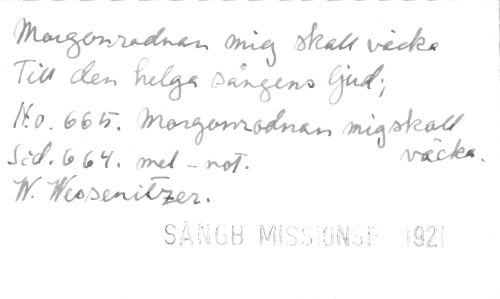 Morgonrodnan mig skall väcka
Till den helga sångens ljud;
No. 665. Morgonrodnan mig skall väcka.
Sid. 664. mel-not.
W. Wessenitzer.
SÅNGB MISSIONSF 1921